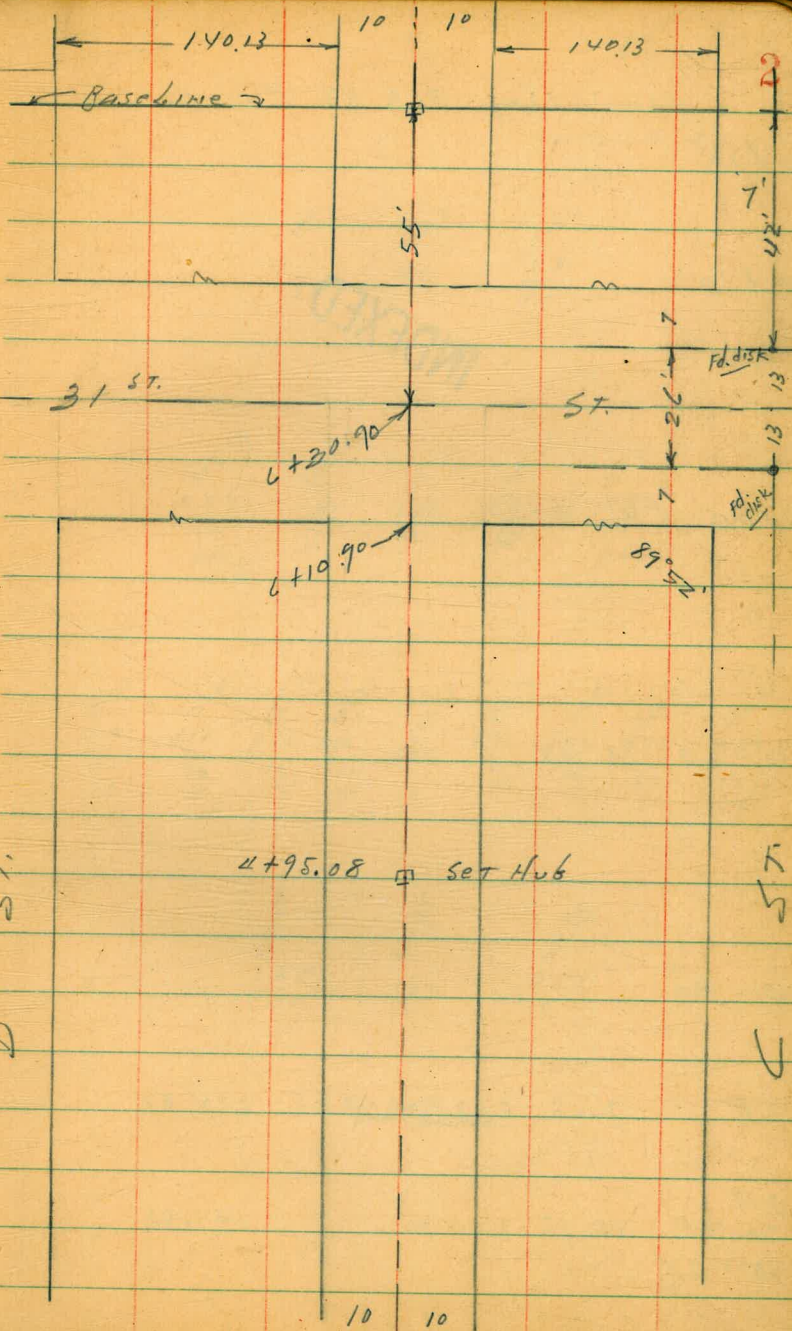 140.13 10 10 140.13
2
Baseline
7'
55'
42'
INDEXED
7
Fd. disk
31 ST. ST.
26'
13
13
6+30.90
7
Fd. disk
6+10.90
4+95.08 Set Hub
D ST.
C ST
10 10